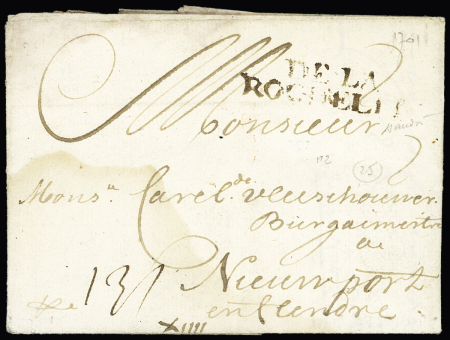 1701
DE LA
ROCHELLE
Monsieur
n°2
25
Mons.r Carel. de vleeschouwer
Burgaimertre
a
Nieuwport
en flendre
131
XIIII